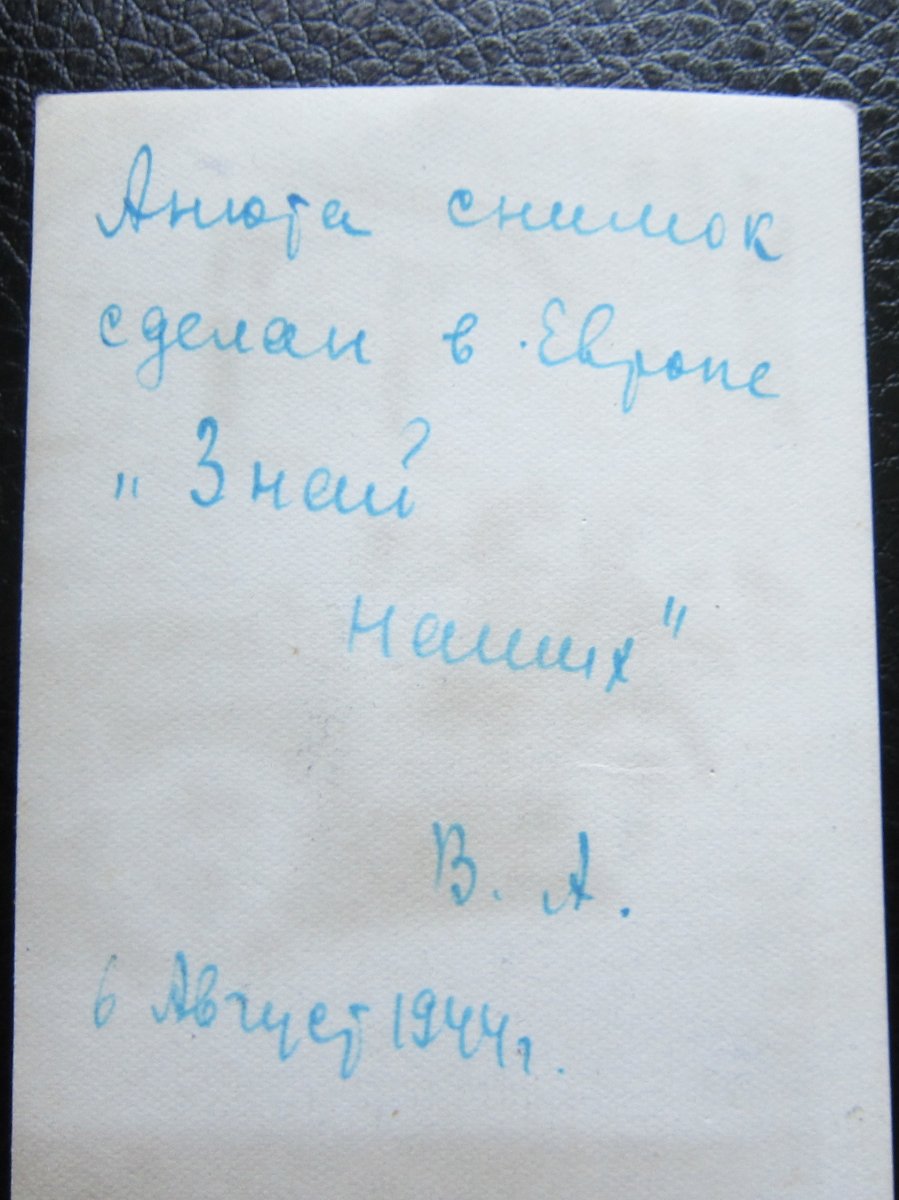 Анюта снимок
сделан в Европе
„Знай
наших"
В. А.
6 Август 1944г.